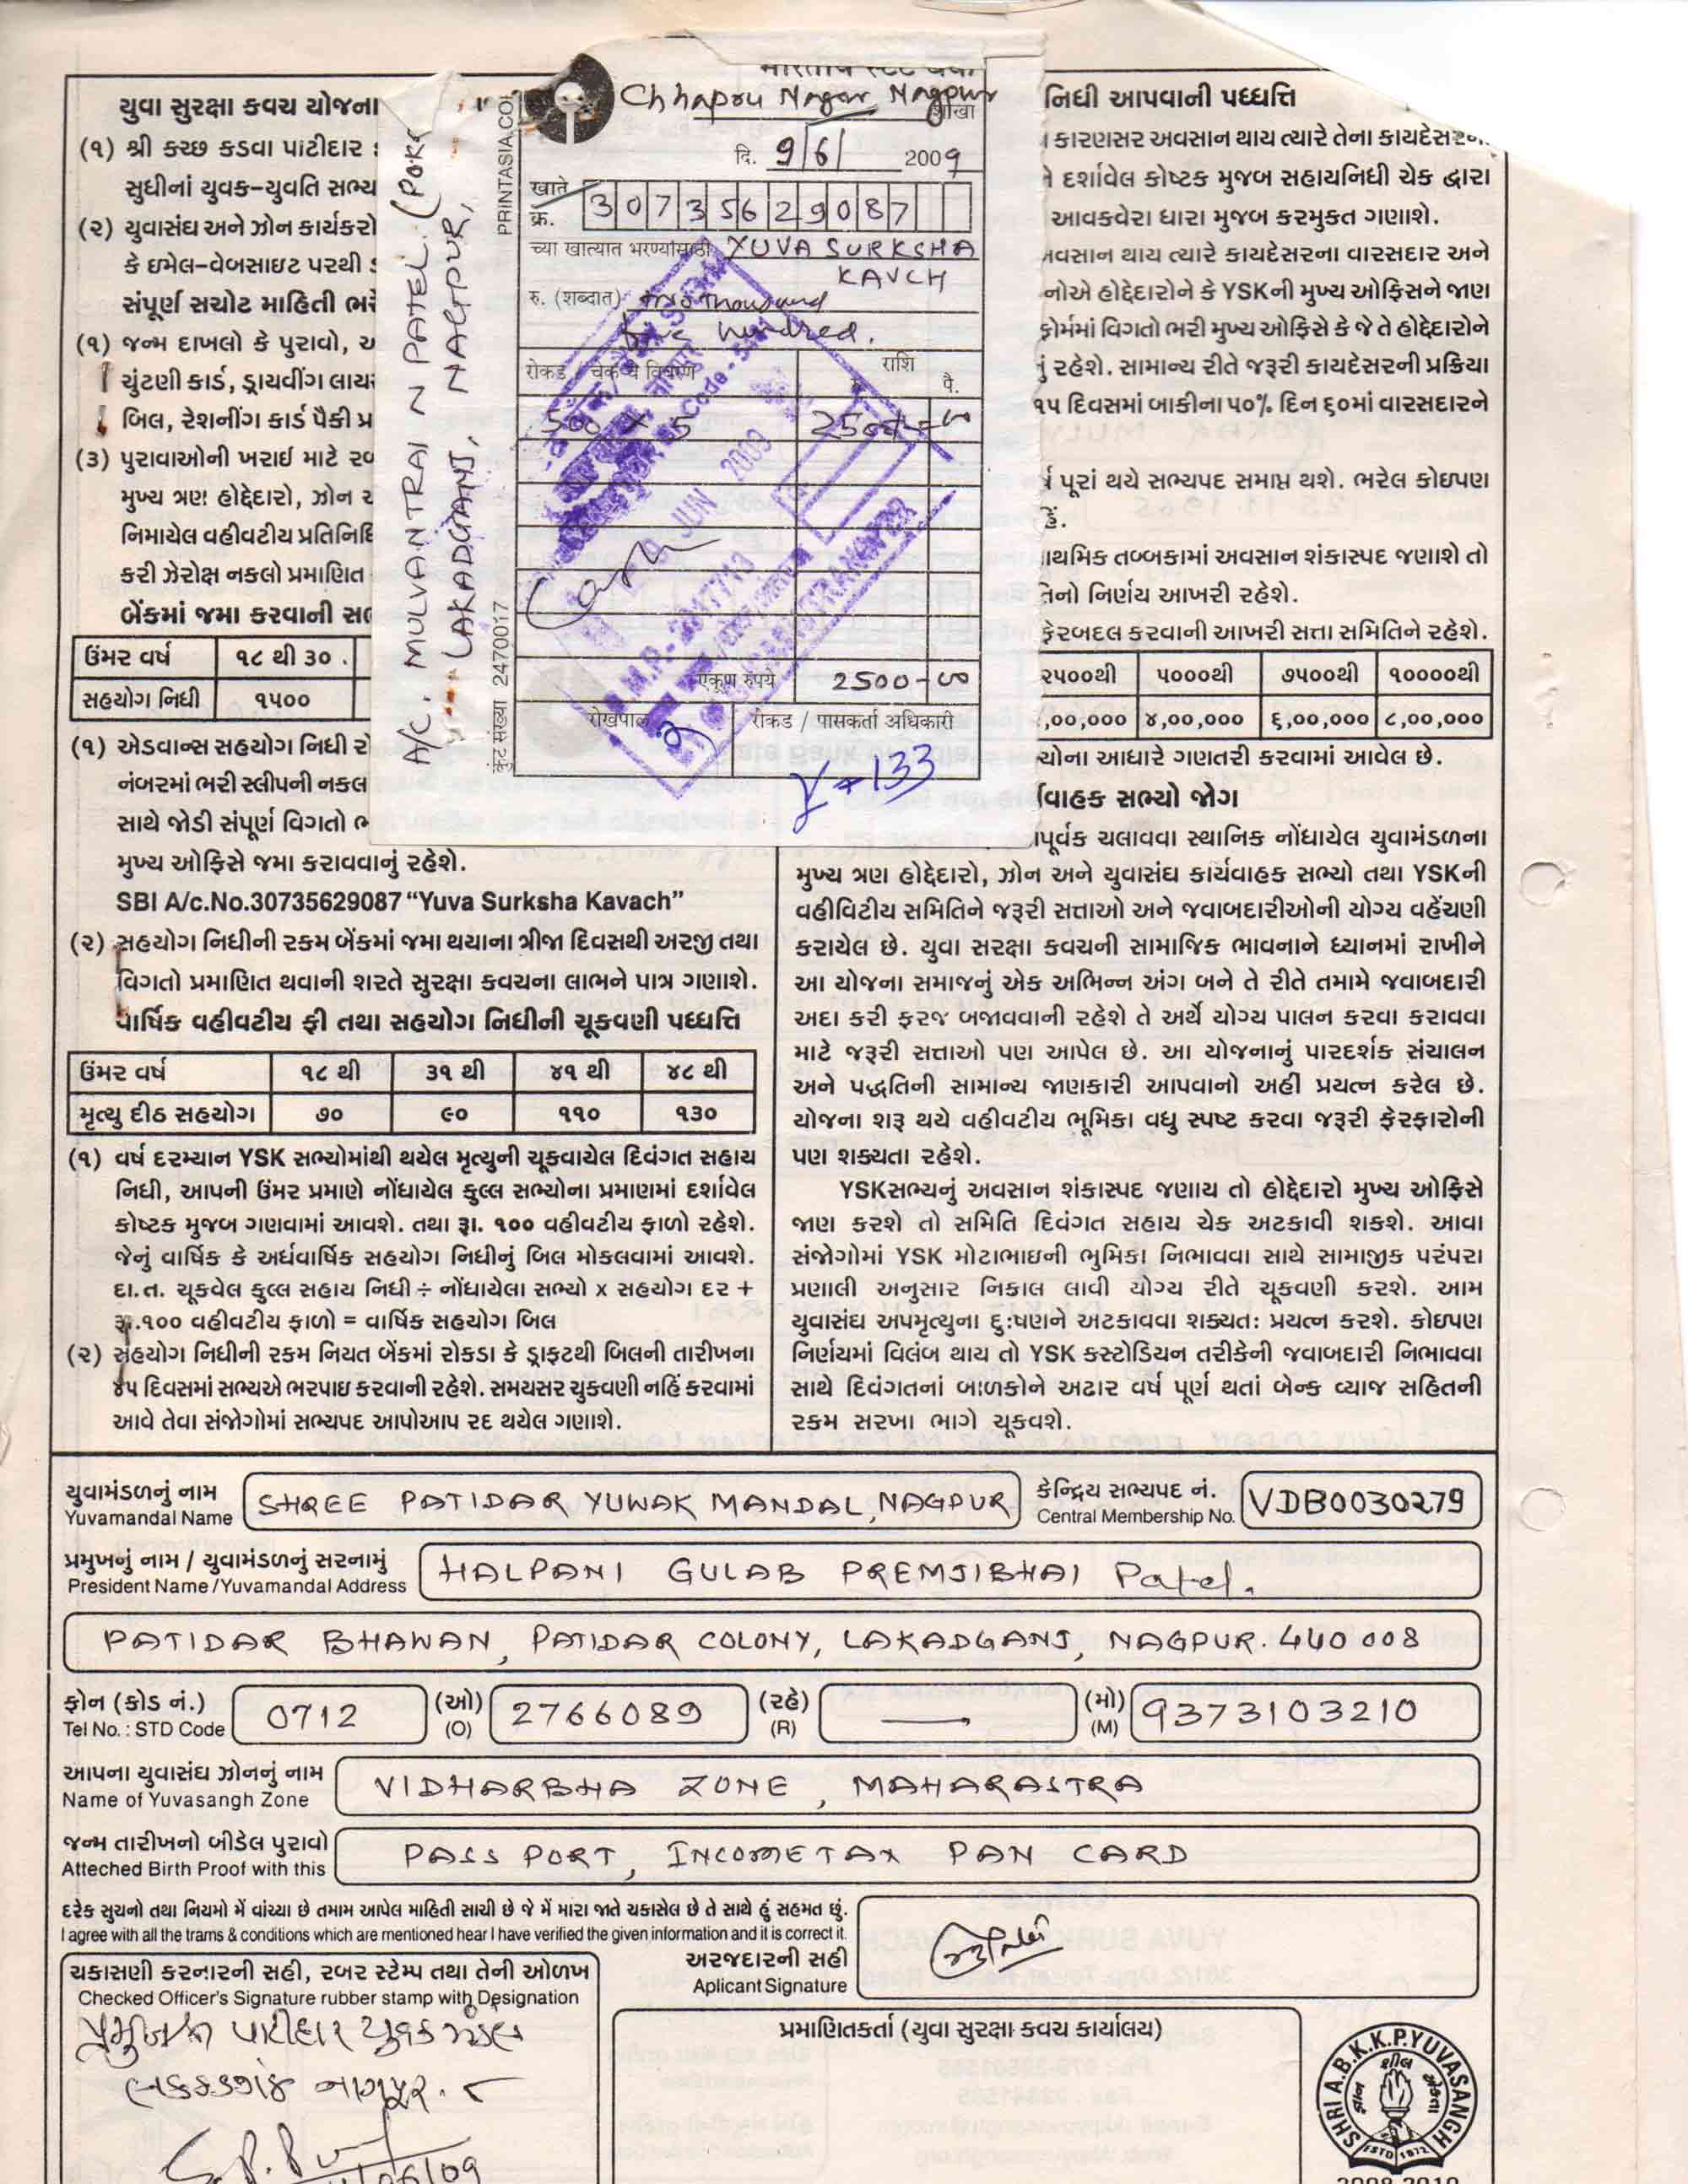 યુવા સુરક્ષા કવચ યોજના
(૧) શ્રી કચ્છ કડવા પાટીદાર
સુધીનાં યુવક-યુવતિ સભ્ય
(૨) યુવાસંઘ અને ઝોન કાર્યકરો
કે ઇમેલ-વેબસાઇટ પરથી
સંપૂર્ણ સચોટ માહિતી
(૧) જન્મ દાખલો કે પુરાવો,
ચુંટણી કાર્ડ, ડ્રાયવીંગ
બિલ, રેશનીંગ કાર્ડ પૈકી
(૩) પુરાવાઓની ખરાઇ માટે
મુખ્ય ત્રણ હોદ્દેદારો, ઝોન
નિમાયેલ વહીવટીય
કરી ઝેરોક્ષ નકલો પ્રમાણિત
બેંકમાં જમા કરવાની
ઉંમર વર્ષ ૧૮ થી ૩૦
સહયોગ નિધી ૧૫૦૦
(૧) એડવાન્સ સહયોગ નિધી
નંબરમાં ભરી સ્લીપની નકલ
સાથે જોડી સંપૂર્ણ વિગતો
મુખ્ય ઓફિસે જમા કરાવવાનું રહેશે.
SBI A/c.No.30735629087 "Yuva Surksha Kavach"
(૨) સહયોગ નિધીની રકમ બેંકમાં જમા થયાના ત્રીજા દિવસથી અરજી તથા
વિગતો પ્રમાણિત થવાની શરતે સુરક્ષા કવચના લાભને પાત્ર ગણાશે.
વાર્ષિક વહીવટીય ફી તથા સહયોગ નિધીની ચૂકવણી પધ્ધતિ
ઉંમર વર્ષ ૧૮ થી ૩૧ થી ૪૧ થી ૪૮ થી
મૃત્યુ દીઠ સહયોગ ૭૦ ૯૦ ૧૧૦ ૧૩૦
(૧) વર્ષ દરમ્યાન YSK સભ્યોમાંથી થયેલ મૃત્યુની ચૂકવાયેલ દિવંગત સહાય
નિધી, આપની ઉંમર પ્રમાણે નોંધાયેલ કુલ્લ સભ્યોના પ્રમાણમાં દર્શાવેલ
કોષ્ટક મુજબ ગણવામાં આવશે. તથા રૂા. ૧૦૦ વહીવટીય ફાળો રહેશે.
જેનું વાર્ષિક કે અર્ધવાર્ષિક સહયોગ નિધીનું બિલ મોકલવામાં આવશે.
દા.ત. ચૂકવેલ કુલ્લ સહાય નિધી ÷ નોંધાયેલા સભ્યો x સહયોગ દર +
રૂા.૧૦૦ વહીવટીય ફાળો = વાર્ષિક સહયોગ બિલ
(૨) સહયોગ નિધીની રકમ નિયત બેંકમાં રોકડા કે ડ્રાફટથી બિલની તારીખના
૪૫ દિવસમાં સભ્યએ ભરપાઇ કરવાની રહેશે. સમયસર ચુકવણી નહિં કરવામાં
આવે તેવા સંજોગોમાં સભ્યપદ આપોઆપ રદ થયેલ ગણાશે.
A/C. MULVANTRAI N PATEL.
LAKADGANJ, NAGPUR,
PRINTASIA.CO
कुंट संख्या 2470017
Chhapru Nagar Nagpur
शाखा
दि. 9/6/ 2009
खाते
क्र. 30735629087
च्या खात्यात भरण्यासाठी YUVA SURKSHA
KAVCH
रु. (शब्दात) Two thousand
five hundred.
रोकड / चेक चे विवरण राशि
रु. पै.
500 x 5 2500
Cash
एकूण रुपये 2500
रोखपाल रोकड / पासकर्ता अधिकारी
133
નિધી આપવાની પધ્ધતિ
કારણસર અવસાન થાય ત્યારે તેના
દર્શાવેલ કોષ્ટક મુજબ સહાયનિધી ચેક દ્વારા
આવકવેરા ધારા મુજબ કરમુક્ત ગણાશે.
અવસાન થાય ત્યારે કાયદેસરના વારસદાર અને
હોદ્દેદારોને કે YSKની મુખ્ય ઓફિસને જાણ
ફોર્મમાં વિગતો ભરી મુખ્ય ઓફિસે કે જે તે હોદ્દેદારોને
રહેશે. સામાન્ય રીતે જરૂરી કાયદેસરની પ્રક્રિયા
૧૫ દિવસમાં બાકીના ૫૦% દિન ૬૦માં વારસદારને
પૂરાં થયે સભ્યપદ સમાપ્ત થશે. ભરેલ કોઇપણ
તબ્બકામાં અવસાન શંકાસ્પદ જણાશે તો
નિર્ણય આખરી રહેશે.
ફેરબદલ કરવાની આખરી સત્તા સમિતિને રહેશે.
૨૫૦૦થી ૫૦૦૦થી ૭૫૦૦થી ૧૦૦૦૦થી
,૦૦,૦૦૦ ૪,૦૦,૦૦૦ ૬,૦૦,૦૦૦ ૮,૦૦,૦૦૦
આધારે ગણતરી કરવામાં આવેલ છે.
સભ્યો જોગ
ચલાવવા સ્થાનિક નોંધાયેલ યુવામંડળના
મુખ્ય ત્રણ હોદ્દેદારો, ઝોન અને યુવાસંઘ કાર્યવાહક સભ્યો તથા YSKની
વહીવિટીય સમિતિને જરૂરી સત્તાઓ અને જવાબદારીઓની યોગ્ય વહેંચણી
કરાયેલ છે. યુવા સરક્ષા કવચની સામાજિક ભાવનાને ધ્યાનમાં રાખીને
આ યોજના સમાજનું એક અભિન્ન અંગ બને તે રીતે તમામે જવાબદારી
અદા કરી ફરજ બજાવવાની રહેશે તે અર્થે યોગ્ય પાલન કરવા કરાવવા
માટે જરૂરી સત્તાઓ પણ આપેલ છે. આ યોજનાનું પારદર્શક સંચાલન
અને પદ્ધતિની સામાન્ય જાણકારી આપવાનો અહીં પ્રયત્ન કરેલ છે.
યોજના શરૂ થયે વહીવટીય ભૂમિકા વધુ સ્પષ્ટ કરવા જરૂરી ફેરફારોની
પણ શક્યતા રહેશે.
YSKસભ્યનું અવસાન શંકાસ્પદ જણાય તો હોદ્દેદારો મુખ્ય ઓફિસે
જાણ કરશે તો સમિતિ દિવંગત સહાય ચેક અટકાવી શકશે. આવા
સંજોગોમાં YSK મોટાભાઇની ભુમિકા નિભાવવા સાથે સામાજીક પરંપરા
પ્રણાલી અનુસાર નિકાલ લાવી યોગ્ય રીતે ચૂકવણી કરશે. આમ
યુવાસંઘ અપમૃત્યુના દુ:ષણને અટકાવવા શક્યત: પ્રયત્ન કરશે. કોઇપણ
નિર્ણયમાં વિલંબ થાય તો YSK કસ્ટોડિયન તરીકેની જવાબદારી નિભાવવા
સાથે દિવંગતનાં બાળકોને અઢાર વર્ષ પૂર્ણ થતાં બેન્ક વ્યાજ સહિતની
રકમ સરખા ભાગે ચૂકવશે.
યુવામંડળનું નામ SHREE PATIDAR YUWAK MANDAL, NAGPUR કેન્દ્રિય સભ્યપદ નં. VDB0030279
Yuvamandal Name Central Membership No.
પ્રમુખનું નામ / યુવામંડળનું સરનામું HALPANI GULAB PREMJIBHAI Patel.
President Name /Yuvamandal Address
PATIDAR BHAWAN, PATIDAR COLONY, LAKADGANJ, NAGPUR. 440 008
ફોન (કોડ નં.) 0712 (ઓ) 2766089 (રહે) — (મો) 9373103210
Tel No. : STD Code (O) (R) (M)
આપના યુવાસંઘ ઝોનનું નામ VIDHARBHA ZONE, MAHARASTRA
Name of Yuvasangh Zone
જન્મ તારીખનો બીડેલ પુરાવો PASS PORT, INCOMETAX PAN CARD
Atteched Birth Proof with this
દરેક સુચનો તથા નિયમો મેં વાંચ્યા છે તમામ આપેલ માહિતી સાચી છે જે મેં મારા જાતે ચકાસેલ છે તે સાથે હું સહમત છું.
I agree with all the trams & conditions which are mentioned hear I have verified the given information and it is correct it.
અરજદારની સહી
Aplicant Signature
ચકાસણી કરનારની સહી, રબર સ્ટેમ્પ તથા તેની ઓળખ
Checked Officer's Signature rubber stamp with Designation
પ્રમુખશ્રી પાટીદાર યુવક મંડળ
લકડગંજ નાગપુર. ૮
પ્રમાણિતકર્તા (યુવા સુરક્ષા કવચ કાર્યાલય)
SHRI A.B.K.K.P.YUVASANGH
ESTD 1972
2008-2010